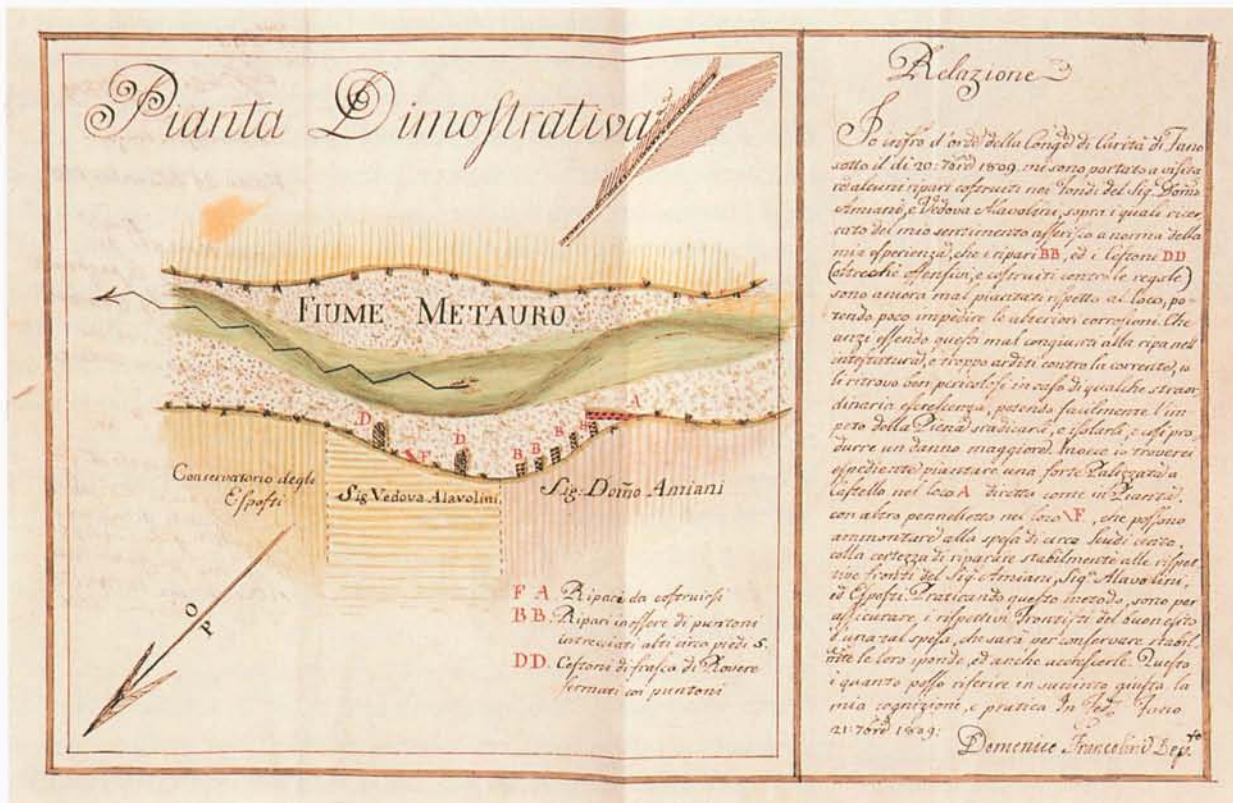 Pianta Dimoſtrativa
FIUME METAURO
A
D
F
D
B
B
B
B
Conservatorio degli
Eſpoſti
Sig. Vedova Alavolini
Sig. Dom̃o Amiani
O
P
F A. Ripari da coſtruirſi
B B. Ripari in eſſere di puntoni
intrecciati alti circa piedi 5.
DD. Ceſtoni di fraſca di Rovere
fermati coi puntoni
Relazione
Io infro d'orde della Conge di Carità di Fano
sotto il dì 20: 7bre 1809 mi sono portato a viſita
re alcuni ripari coſtruiti nei fondi del Sig. Dom̃o
Amiani, e Vedova Alavolini, sopra i quali ricer
cato del mio sentimento aſſeriſco a norma della
mia eſperienza, che i ripari BB, ed i Ceſtoni DD
(oltreche offenſivi, e coſtruiti contro le regole)
sono ancora mal piantati riſpetto al loco, po-
tendo poco impedire le ulteriori corroſioni. Che
anzi eſſendo queſti mal congiunti alla ripa nell'
inteſtatura, e troppo arditi contro la corrente, io
li ritrovo ben pericoloſi in caſo di qualche straor
dinaria eſcreſcenza, potendo facilmente l'im
peto della Piena sradicarli, e iſolarli, e coſi pro
durre un danno maggiore. Invece io troverei
eſpediente piantare una forte Palizzata a
Caſtello nel loco A diretto come in Pianta,
con altro pennelletto nel loco F, che poſſono
ammontare alla speſa di circa Scudi cento,
colla certezza di riparare stabilmente alle riſpet
tive fronti del Sig. Amiani, Siga Alavolini,
ed Eſpoſti. Praticando queſto metodo, sono per
aſſicurare, i riſpettivi Frontiſti del buon eſito
d'una tal speſa, che sarà per conſervare stabil-
mte le loro sponde, ed anche accreſcerle. Queſto
è quanto poſſo riferire in succinto giuſta la
mia cognizione, e pratica In Fede Fano
21: 7bre 1809:
Domenico Francolini